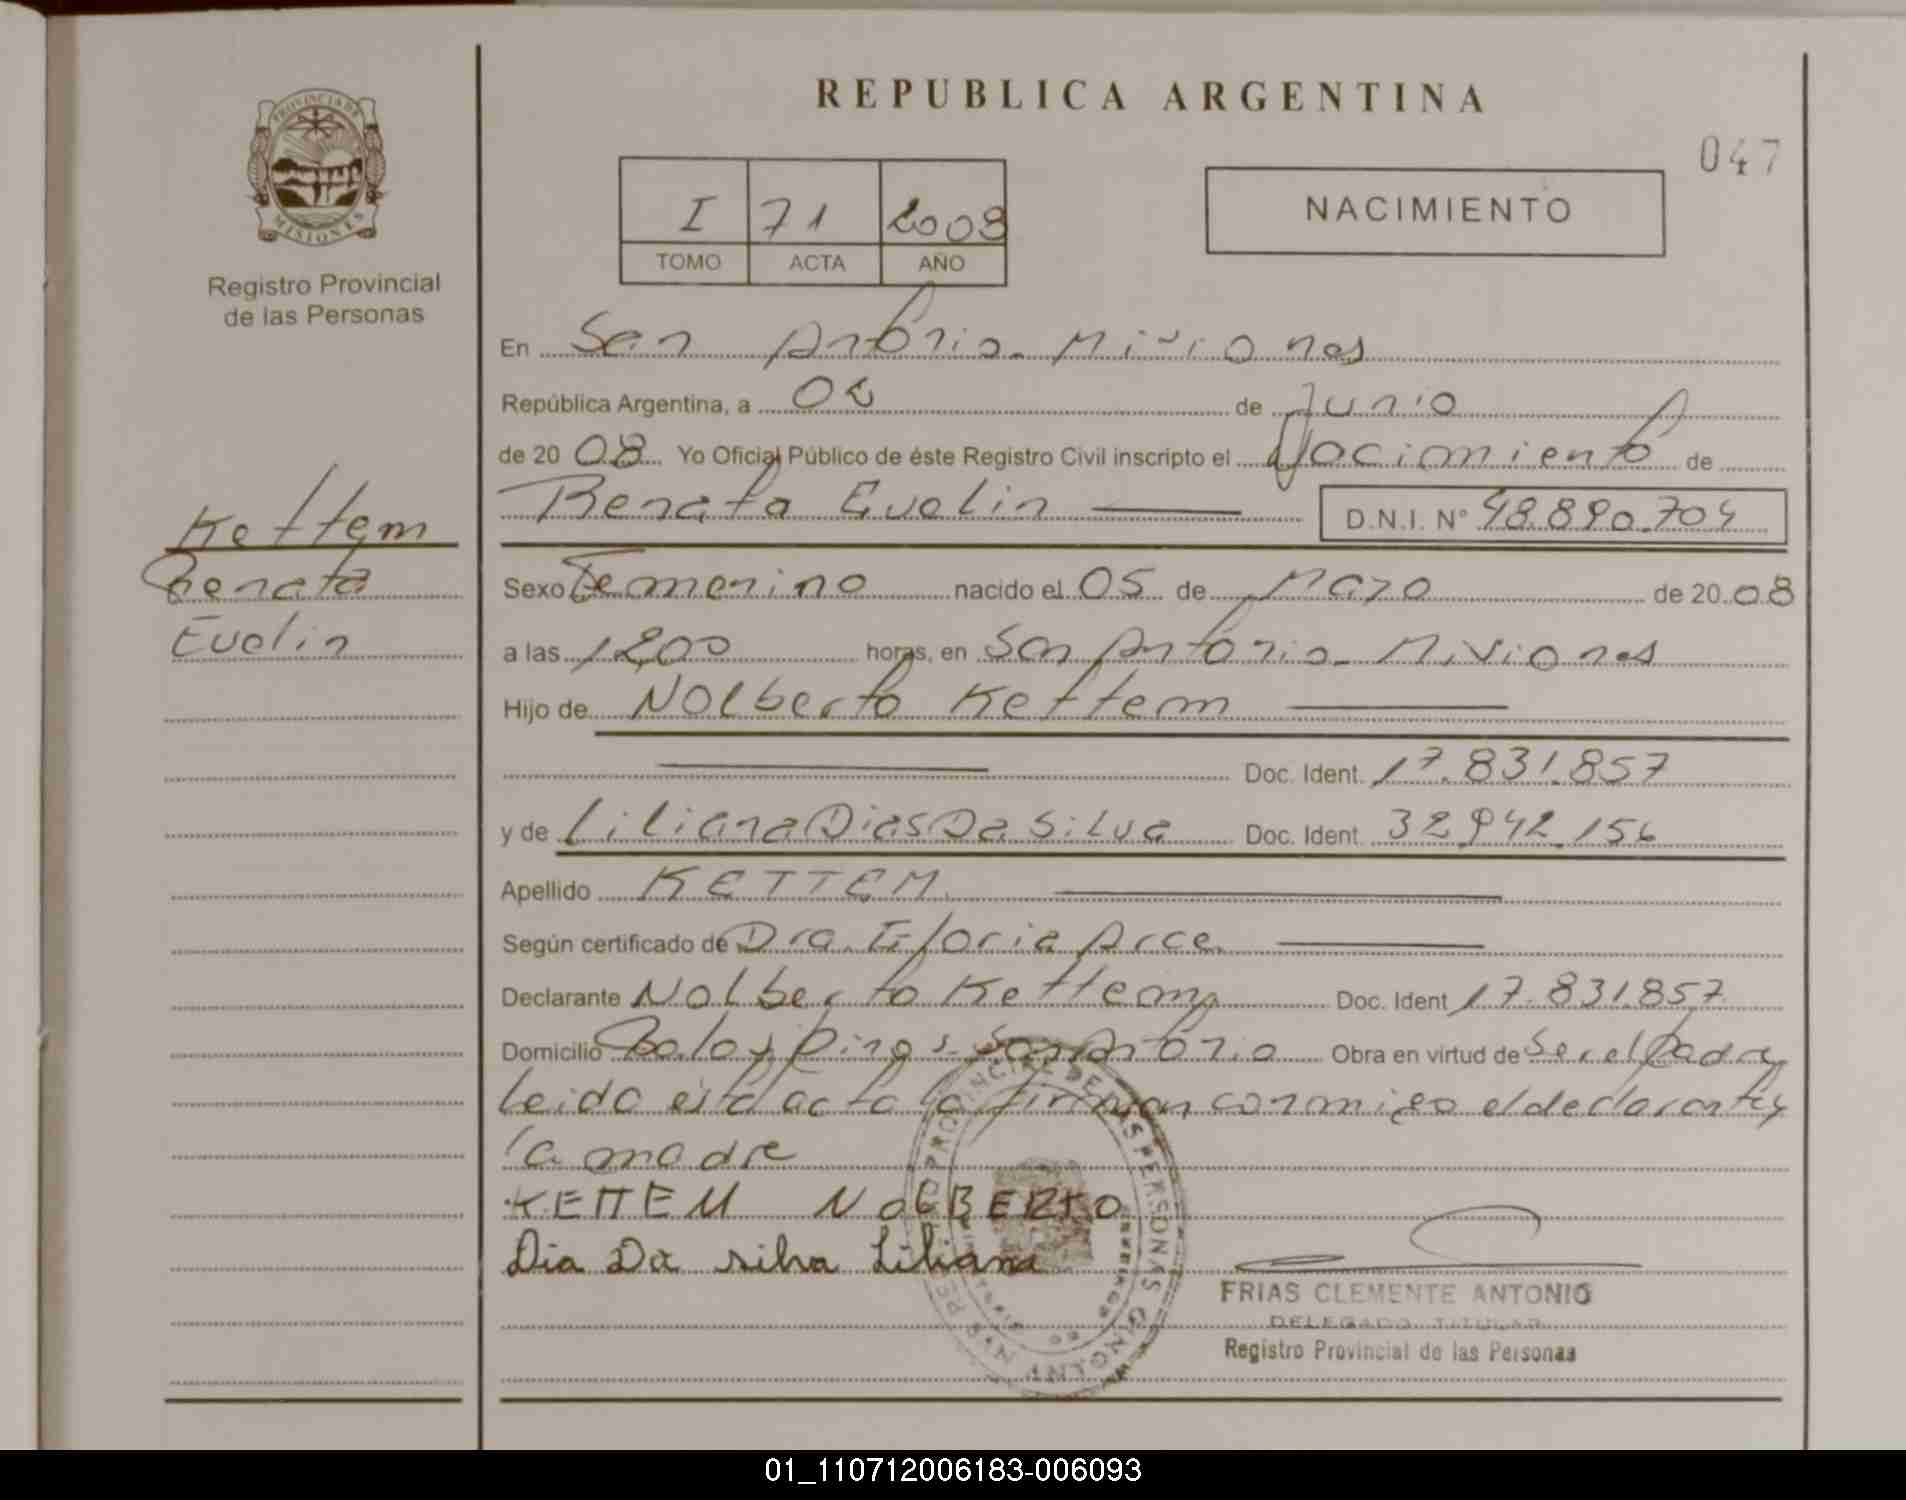 PROVINCIA DE
MISIONES
Registro Provincial
de las Personas
Kettem
Renata
Evelin
REPUBLICA ARGENTINA
047
I 71 2008
TOMO ACTA AÑO
NACIMIENTO
En San Antonio - Misiones
República Argentina, a 02 de Junio
de 20 08 Yo Oficial Público de éste Registro Civil inscripto el Nacimiento de
Renata Evelin D.N.I. Nº 48.890.704
Sexo Femenino nacido el 05 de Mayo de 20 08
a las 1200 horas, en San Antonio - Misiones
Hijo de Nolberto Kettem
Doc. Ident. 17.831.857
y de Liliana Dias Da Silva Doc. Ident. 32.942.156
Apellido KETTEM
Según certificado de Dra. Gloria Arce
Declarante Nolberto Kettem Doc. Ident 17.831.857
Domicilio San Antonio Obra en virtud de Ser el Padre
Leida esta acta la firman conmigo el declarante y
la madre
KETTEM NOLBERTO
Dia Da silva Liliana
FRIAS CLEMENTE ANTONIO
DELEGADO TITULAR
Registro Provincial de las Personas
01_110712006183-006093